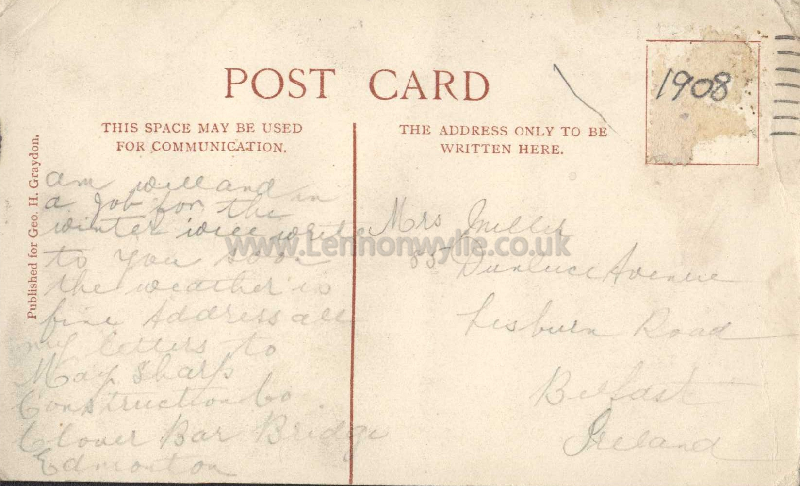 POST CARD
1908
THIS SPACE MAY BE USED
FOR COMMUNICATION.
THE ADDRESS ONLY TO BE
WRITTEN HERE.
Published for Geo. H. Graydon.
am well and in
a job for the
winter will write
to you soon
the weather is
fine Address all
my letters to
May Sharp
Construction Co
Clover Bar Bridge
Edmonton
Mrs Miller
Dunluce Avenue
Lisburn Road
Belfast
Ireland
www.Lennonwylie.co.uk